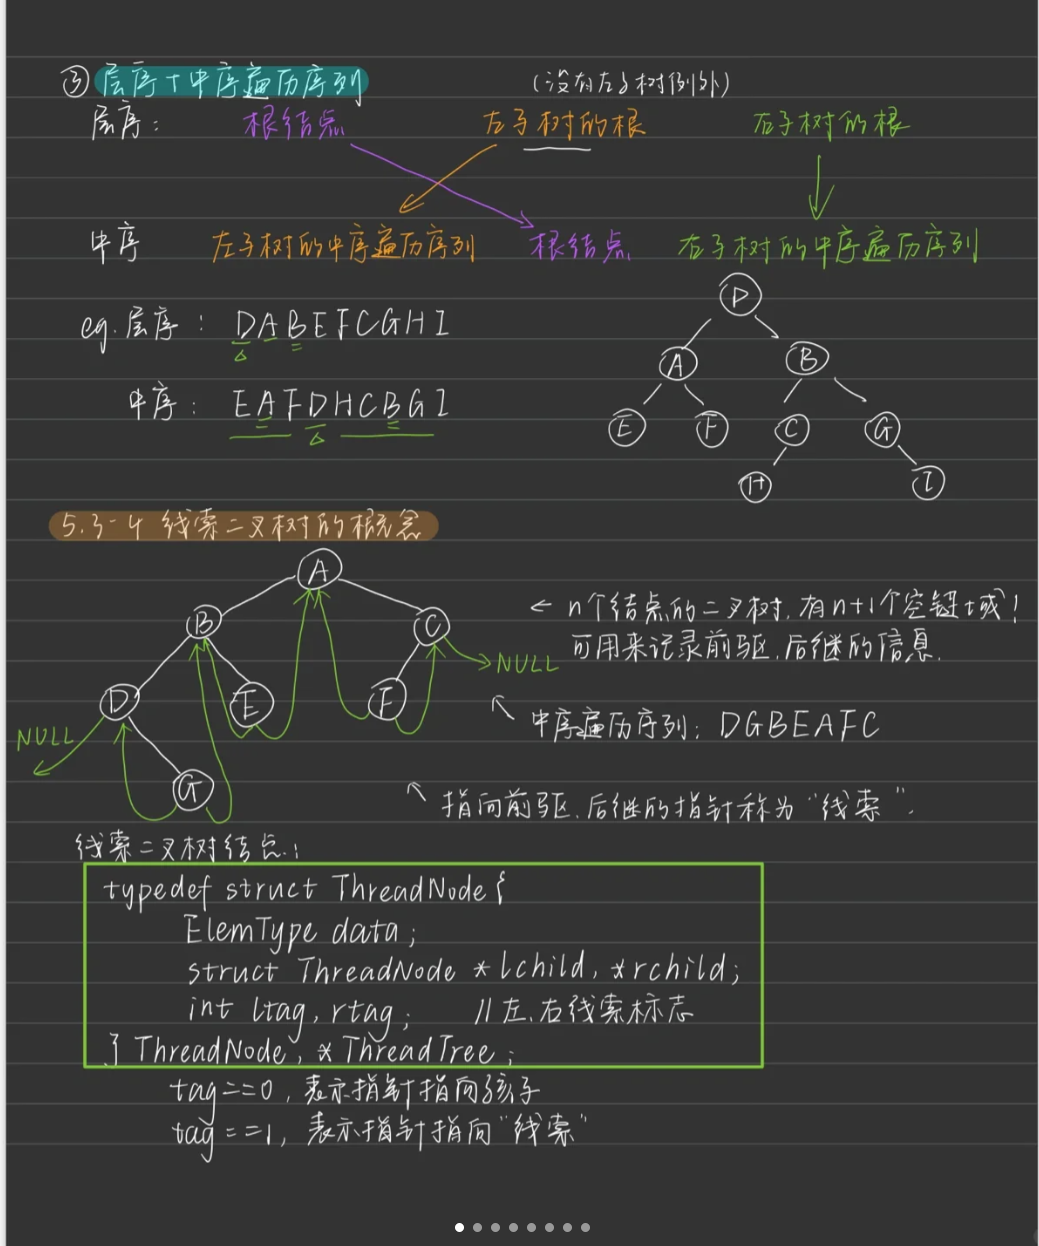 ③ 层序+中序遍历序列
(没有左子树例外)
层序: 根结点 左子树的根 右子树的根
中序 左子树的中序遍历序列 根结点 右子树的中序遍历序列
eg. 层序: DABEFCGHI
中序: EAFDHCBGI
D
A B
E F C G
H I
5.3-4 线索二叉树的概念
A
B C
D E F
G
NULL
NULL
← n个结点的二叉树,有n+1个空链域!
可用来记录前驱、后继的信息.
中序遍历序列: DGBEAFC
指向前驱、后继的指针称为“线索”.
线索二叉树结点:
typedef struct ThreadNode{
ElemType data;
struct ThreadNode *lchild, *rchild;
int ltag, rtag; //左、右线索标志
} ThreadNode, *ThreadTree;
tag==0, 表示指针指向孩子
tag==1, 表示指针指向“线索”